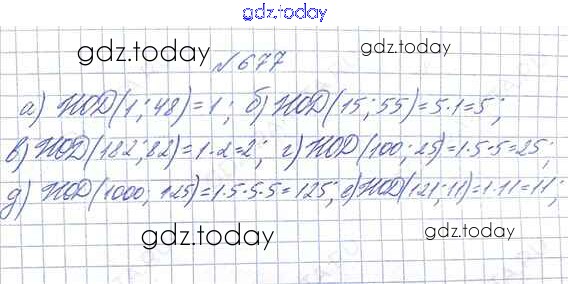 gdz.today
gdz.today gdz.today
№677
а) НОД(1; 48)=1; б) НОД(15; 55)=5·1=5;
в) НОД(182; 82)=1·2=2; г) НОД(100; 25)=1·5·5=25;
д) НОД(1000; 125)=1·5·5·5=125; е) НОД(121; 11)=1·11=11;
gdz.today gdz.today